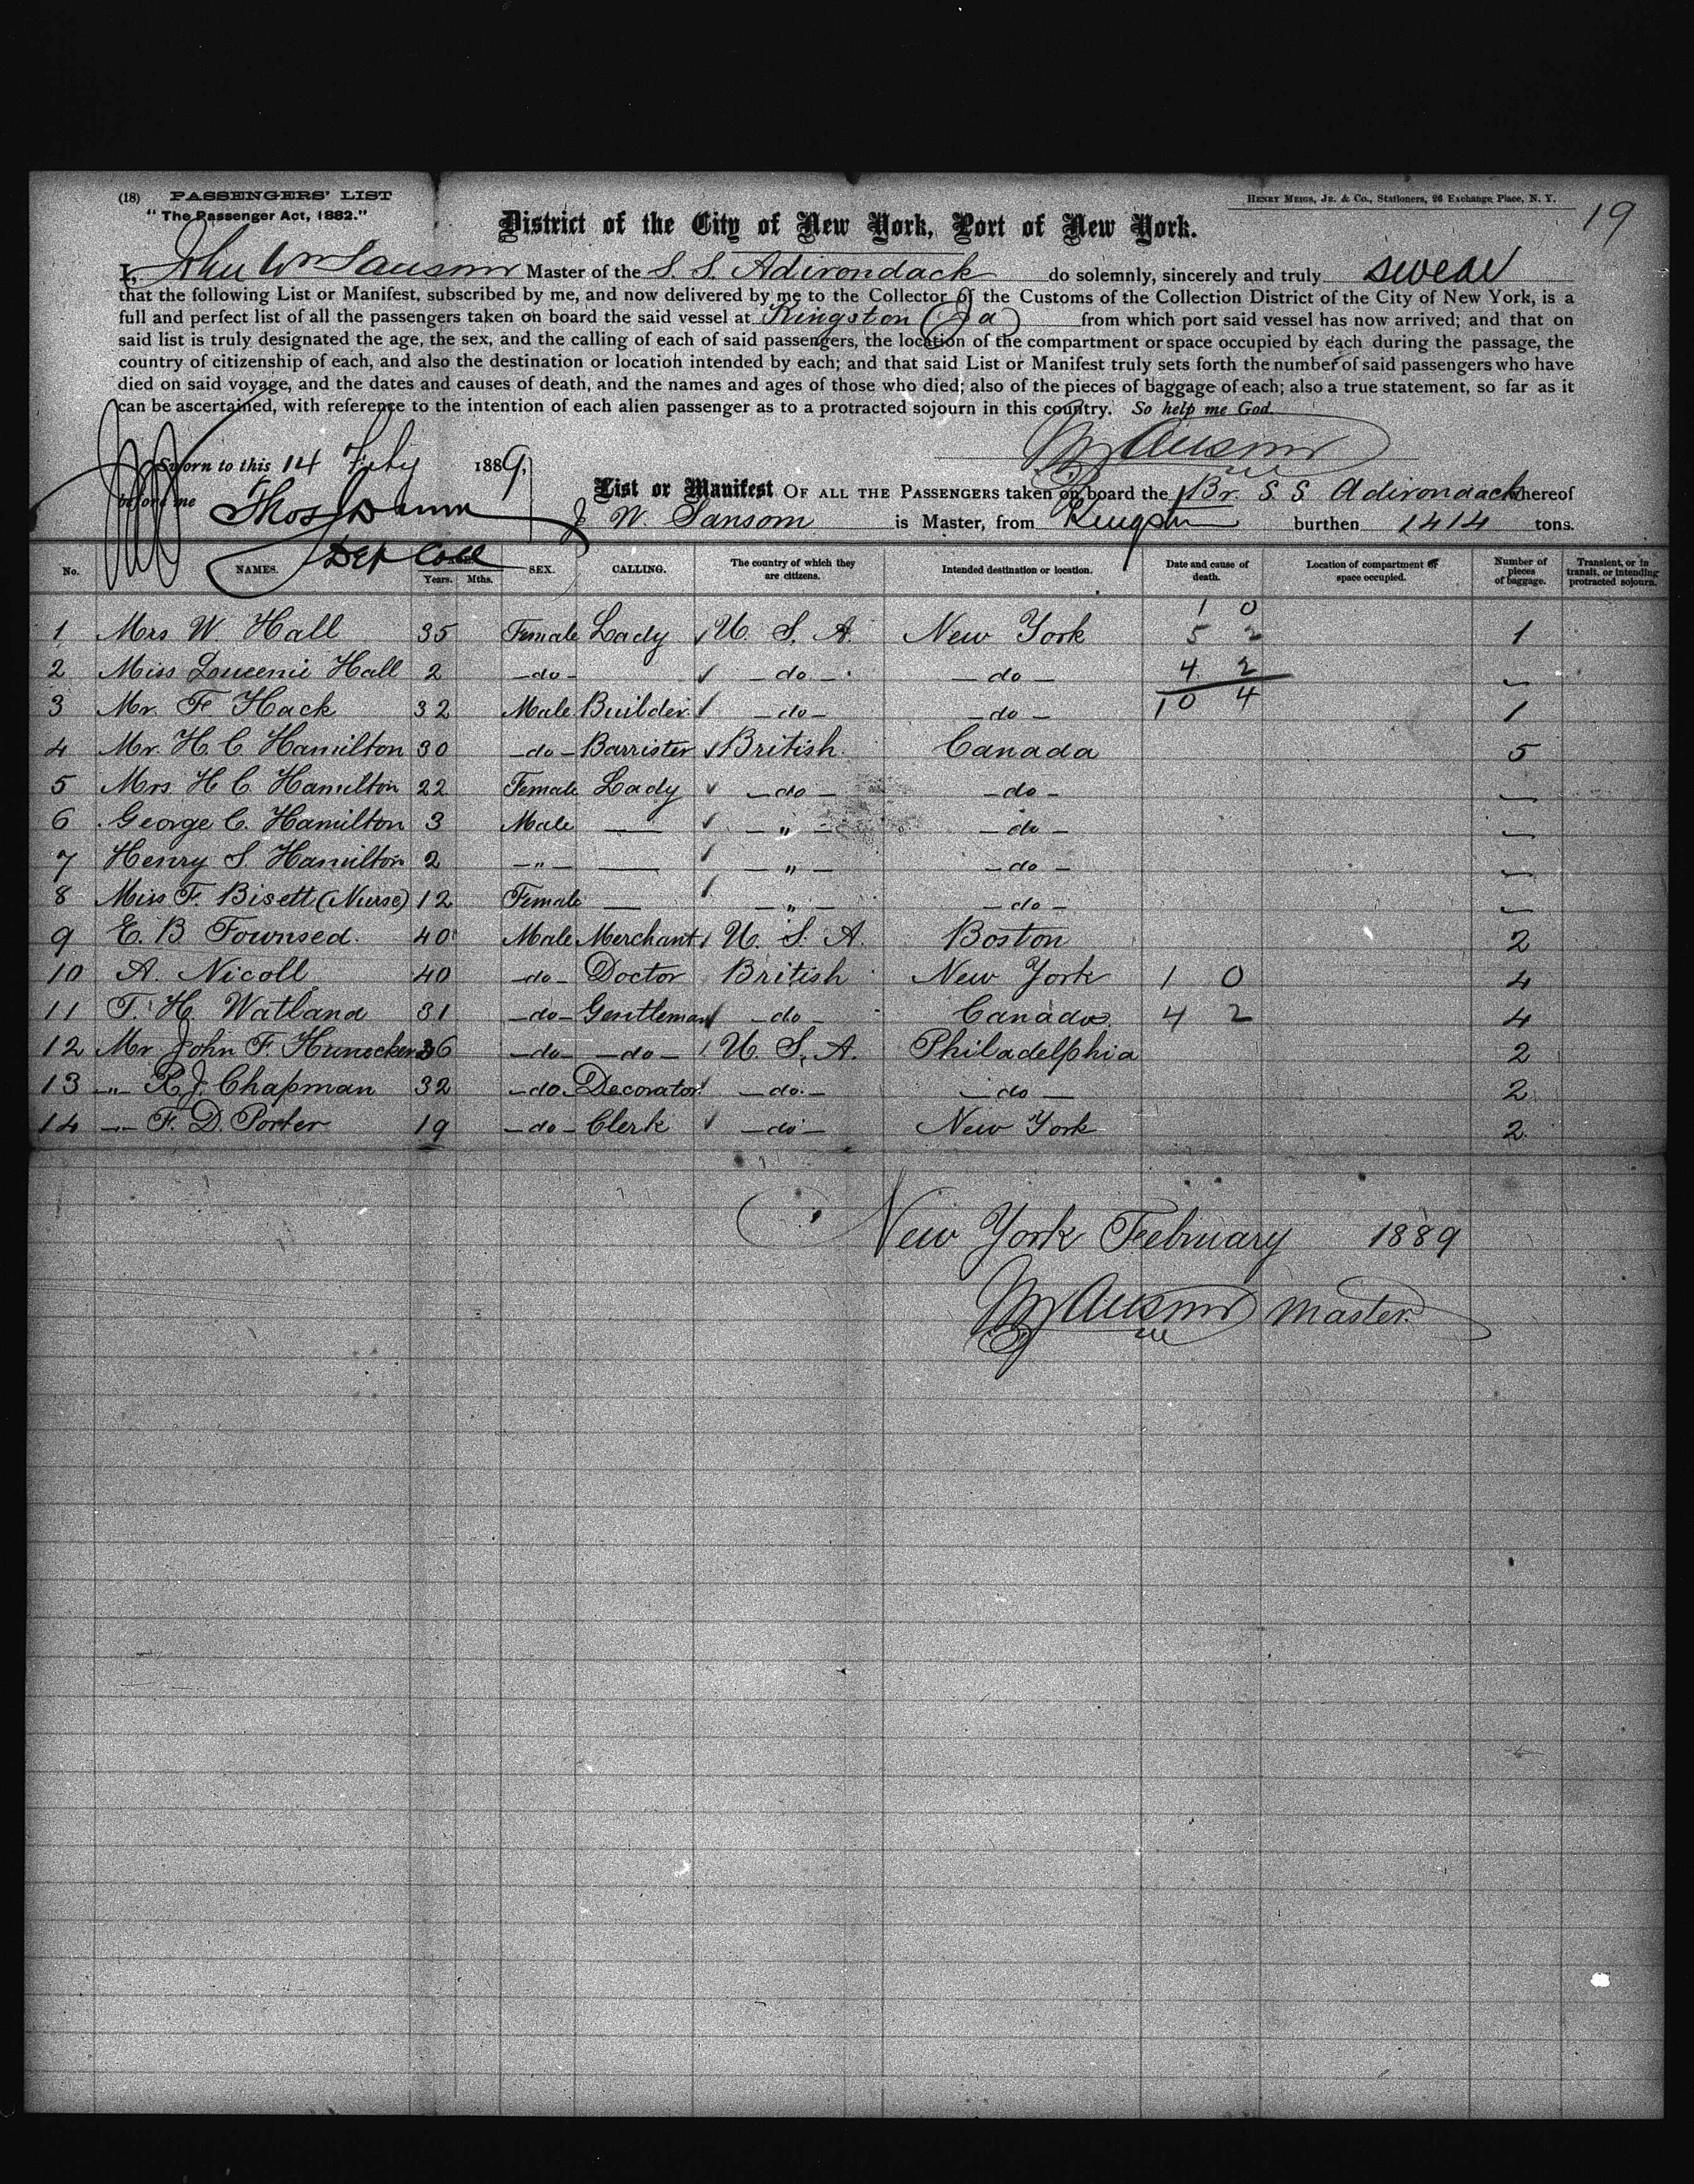 (18) PASSENGERS' LIST
"The Passenger Act, 1882."
HENRY MEIGS, JR. & CO., Stationers, 26 Exchange Place, N. Y.
19
District of the City of New York, Port of New York.
I, John Wm Sansom Master of the S. S. Adirondack do solemnly, sincerely and truly swear
that the following List or Manifest, subscribed by me, and now delivered by me to the Collector of the Customs of the Collection District of the City of New York, is a
full and perfect list of all the passengers taken on board the said vessel at Kingston (Ja) from which port said vessel has now arrived; and that on
said list is truly designated the age, the sex, and the calling of each of said passengers, the location of the compartment or space occupied by each during the passage, the
country of citizenship of each, and also the destination or location intended by each; and that said List or Manifest truly sets forth the number of said passengers who have
died on said voyage, and the dates and causes of death, and the names and ages of those who died; also of the pieces of baggage of each; also a true statement, so far as it
can be ascertained, with reference to the intention of each alien passenger as to a protracted sojourn in this country. So help me God.
Sworn to this 14 Feby 1889,
before me Thos Dunn
Dep Coll
List or Manifest OF ALL THE PASSENGERS taken on board the Br. S S Adirondack whereof
J W. Sansom is Master, from Kingston burthen 1414 tons.
No. NAMES. Years. Mths. SEX. CALLING. The country of which they are citizens. Intended destination or location. Date and cause of death. Location of compartment or space occupied. Number of pieces of baggage. Transient, or in transit, or intending protracted sojourn.
1 0
1 Mrs W. Hall 35 Female Lady U. S. A. New York 5 2 1
2 Miss Hall 2 -do- -do- -do- 4 2 -
3 Mr. F Hack 32 Male Builder -do- -do- 10 4 1
4 Mr. H. C. Hamilton 30 -do- Barrister British Canada 5
5 Mrs H C. Hamilton 22 Female Lady -do- -do- -
6 George C. Hamilton 3 Male — -"- -do- -
7 Henry S. Hamilton 2 -"- — -"- -do- -
8 Miss F. Bisett (Nurse) 12 Female — -"- -do- -
9 E. B Townsed. 40 Male Merchant U. S. A. Boston 2
10 A. Nicoll 40 -do- Doctor British New York 1 0 4
11 T. H. Watland 31 -do- Gentleman -do- Canada 4 2 4
12 Mr John F. Hunecker 36 -do- -do- U. S. A. Philadelphia 2
13 -"- R. J. Chapman 32 -do- Decorator -do- -do- 2
14 -"- F. D. Porter 19 -do- Clerk -do- New York 2
New York February 1889
Master.